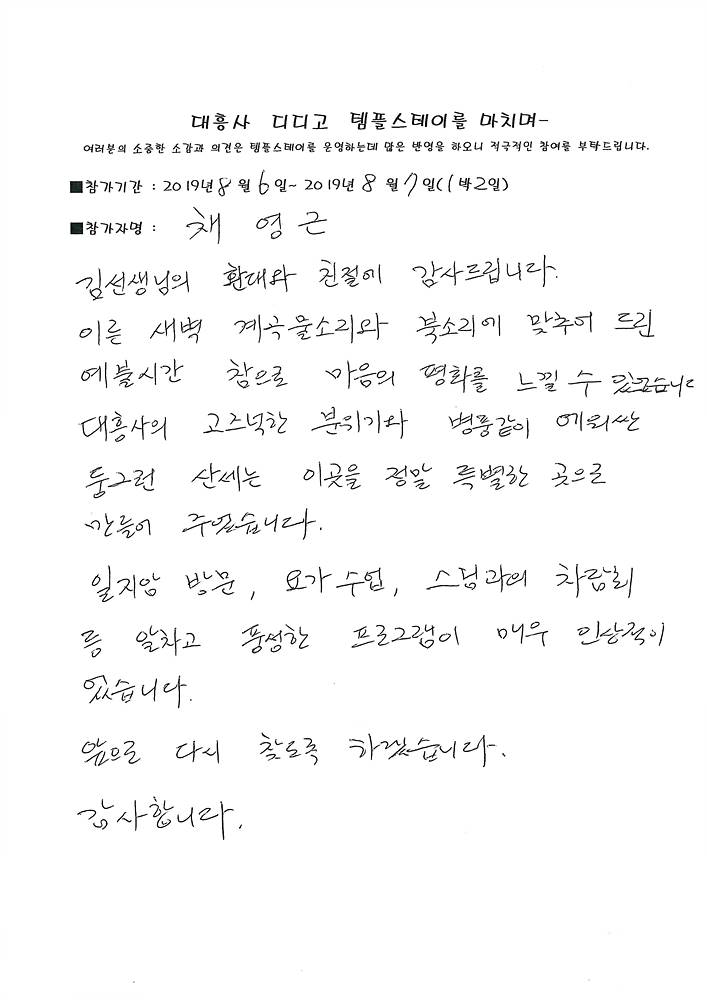 대흥사 디디고 템플스테이를 마치며-
여러분의 소중한 소감과 의견은 템플스테이를 운영하는데 많은 반영을 하오니 적극적인 참여를 부탁드립니다.
■참가기간 : 2019년 8 월 6 일~ 2019년 8 월 7 일( 1 박 2 일)
■참가자명 : 채 영 근
김선생님의 환대와 친절에 감사드립니다.
이른 새벽 계곡물소리와 북소리에 맞추어 드린
예불시간 참으로 마음의 평화를 느낄 수 있었습니다
대흥사의 고즈넉한 분위기와 병풍같이 에워싼
둥그런 산세는 이곳을 정말 특별한 곳으로
만들어 주었습니다.
일지암 방문, 요가수업, 스님과의 차담회
등 알차고 풍성한 프로그램이 매우 인상적이
었습니다.
앞으로 다시 찾도록 하겠습니다.
감사합니다.